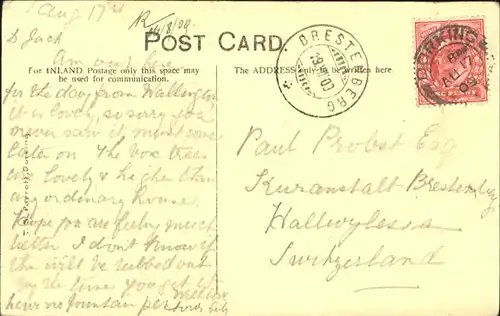 Aug 17th
R 19/8/09.
D Jack
Am out here
POST CARD.
For INLAND Postage only this space may
be used for communication.
The ADDRESS only to be written here
for the day from Wallington
it is lovely, so sorry you
never saw it, must come
later on. The box trees
are lovely & higher than
any ordinary house.
Hope you are feeling much
better I don't know if
this will be rubbed out
by the time you get it
have no fountain pen
BRESTENBERG
DORKING
AU 17
09
Paul Probst Esq
Kuranstalt Brestenberg
Hallwylersee
Switzerland